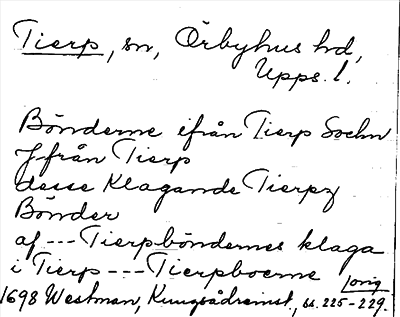 Tierp, sn, Örbyhus hd,
Upps. l.
Bönderne ifrån Tierp Sochn
Jfrån Tierp
desse Klagande Tierpz
Bönder
af --- Tierpböndernes klaga
i Tierp --- Tierpboerne
orig
1698 Westman, Kungsådreinst., ss. 225-229.